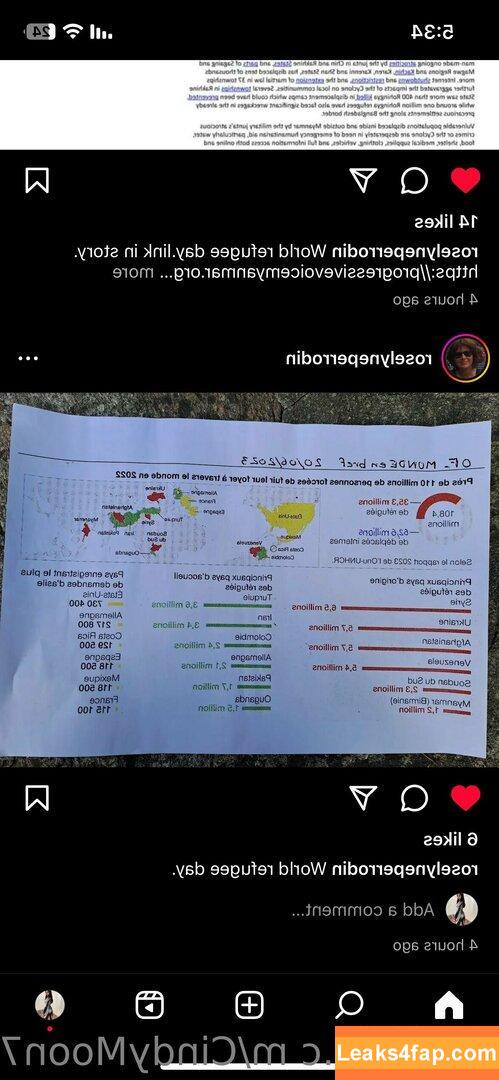 5:34
24
man-made ongoing atrocities by the junta in Chin and Rakhine States, and parts of Sagaing and
Magwe Regions and Kachin, Karen, Karenni and Shan States, has displaced tens of thousands
more. Internet shutdowns and restrictions, and the extension of martial law in 37 townships
further aggravated the impacts of the Cyclone on local communities. Several townships in Rakhine
State saw more than 400 Rohingya killed in displacement camps which could have been prevented,
while around one million Rohingya refugees have also faced significant wreckages in the already
precarious settlements along the Bangladesh border.
Vulnerable populations displaced inside and outside Myanmar by the military junta's atrocious
crimes or the Cyclone are desperately in need of emergency humanitarian aid, particularly water,
food, shelter, medical supplies, clothing, vehicles, and full information access both online and
14 likes
roselyneperrodin World refugee day.link in story.
https://progressivevoicemyanmar.org... more
4 hours ago
roselyneperrodin
OF - MONDE en bref 20/06/2023
Près de 110 millions de personnes forcées de fuir leur foyer à travers le monde en 2022
108,4
millions
35,3 millions
de réfugiés
62,6 millions
de déplacés internes
Selon le rapport 2023 de l'Onu-UNHCR.
États-Unis
Mexique
Costa Rica
Venezuela
Colombie
Allemagne
France
Espagne
Ukraine
Turquie
Syrie
Iran
Afghanistan
Pakistan
Soudan
du Sud
Ouganda
Myanmar
Principaux pays d'origine
des réfugiés
Syrie
6,5 millions
Ukraine
5,7 millions
Afghanistan
5,7 millions
Venezuela
5,4 millions
Soudan du Sud
2,3 millions
Myanmar (Birmanie)
1,2 million
Principaux pays d'accueil
des réfugiés
Turquie
3,6 millions
Iran
3,4 millions
Colombie
2,4 millions
Allemagne
2,1 millions
Pakistan
1,7 million
Ouganda
1,5 million
Pays enregistrant le plus
de demandes d'asile
États-Unis
730 400
Allemagne
217 800
Costa Rica
129 500
Espagne
118 500
Mexique
118 500
France
115 100
6 likes
roselyneperrodin World refugee day.
Add a comment...
4 hours ago
c.c m/CindyMoon7
Leaks4fap.com